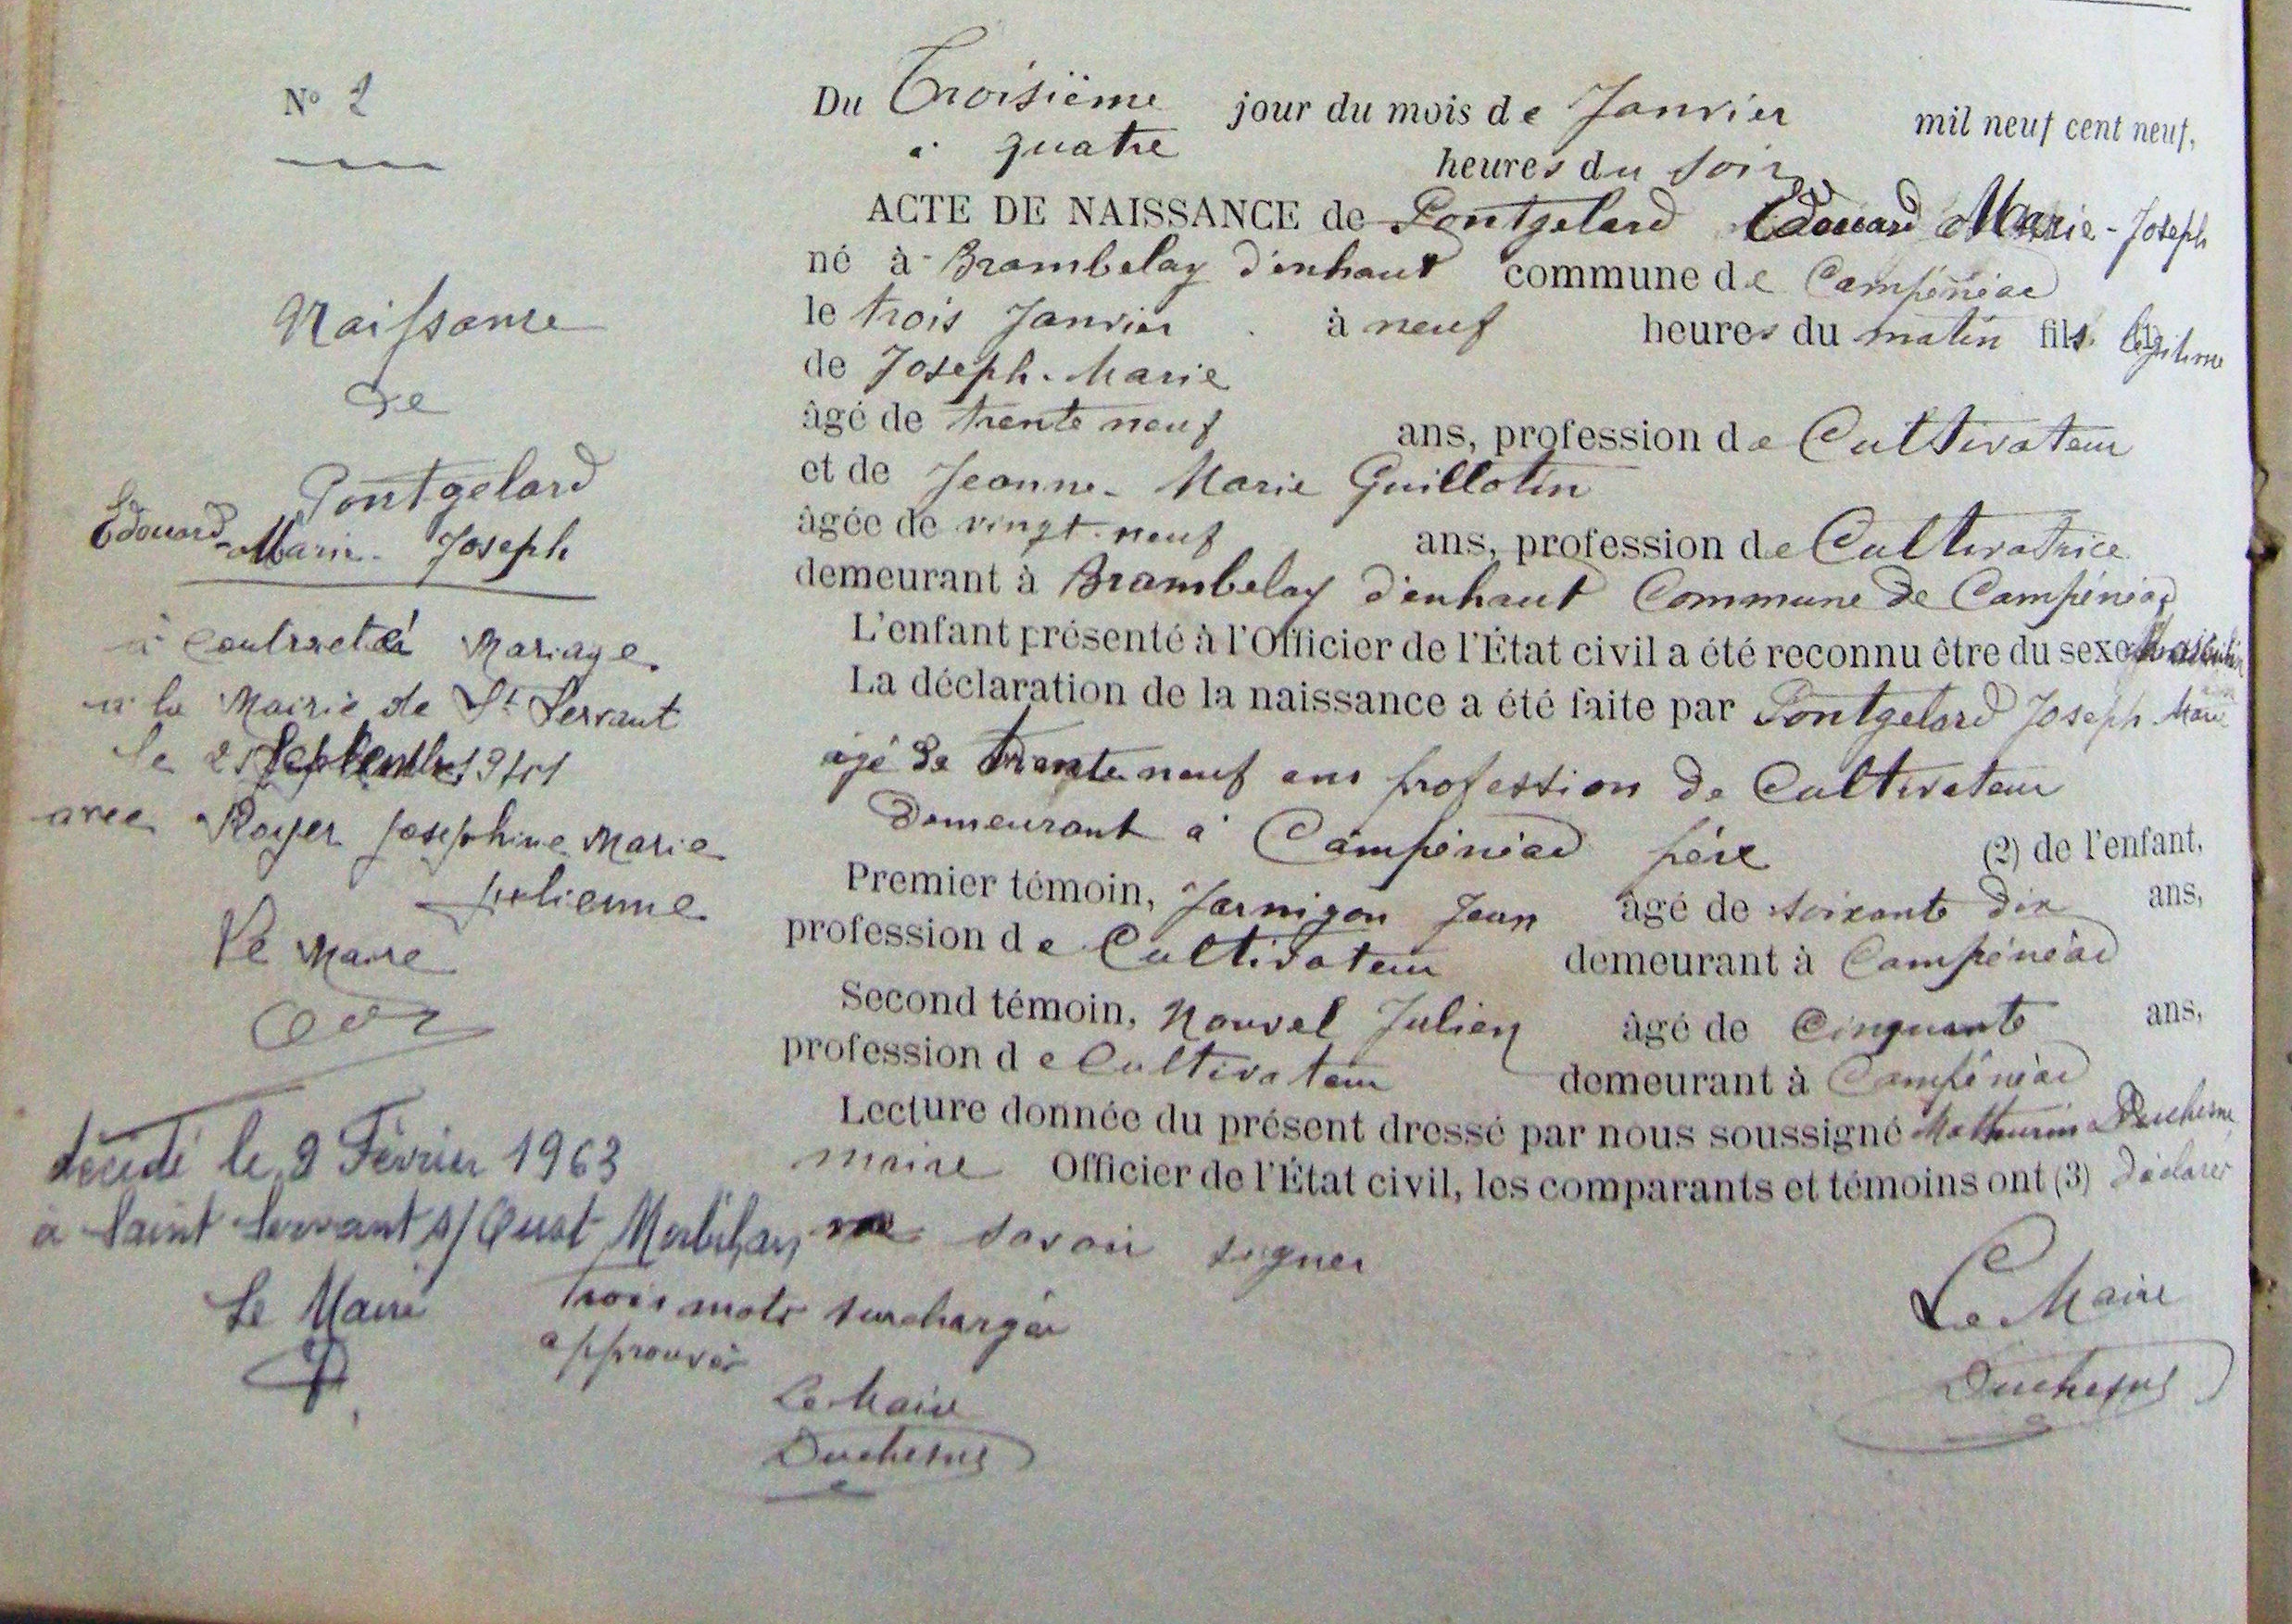 N° 2
Naissance
de
Pontgelard
Edouard-Marie-Joseph
à contracté Mariage
à la Mairie de St Servant
le 21 Septembre 19
avec Royer Joséphine Marie
Julienne
Le Maire
décédé le 9 Février 1963
à Saint Servant s/ Oust Morbihan
Le Maire
Du Troisième jour du mois de Janvier mil neuf cent neuf,
à quatre heures du soir
ACTE DE NAISSANCE de Pontgelard Edouard Marie-Joseph
né à Brambelay d'enhaut commune de Campénéac
le trois Janvier à neuf heures du matin fils légitime
de Joseph-Marie
âgé de trente neuf ans, profession de Cultivateur
et de Jeanne-Marie Guillotin
âgée de vingt-neuf ans, profession de Cultivatrice
demeurant à Brambelay d'enhaut Commune de Campénéac
L'enfant présenté à l'Officier de l'État civil a été reconnu être du sexe Masculin
La déclaration de la naissance a été faite par Pontgelard Joseph Marie
âgé de trente neuf ans profession de Cultivateur
Demeurant à Campénéac père (2) de l'enfant,
Premier témoin, Jarnigon Jean âgé de soixante dix ans,
profession de Cultivateur demeurant à Campénéac
Second témoin, Nouvel Julien âgé de Cinquante ans,
profession de Cultivateur demeurant à Campénéac
Lecture donnée du présent dressé par nous soussigné Mathurin Duchesne
maire Officier de l'État civil, les comparants et témoins ont (3) déclaré
ne savoir signer
Trois mots surchargés
approuvés
Le Maire
Duchesne
Le Maire
Duchesne